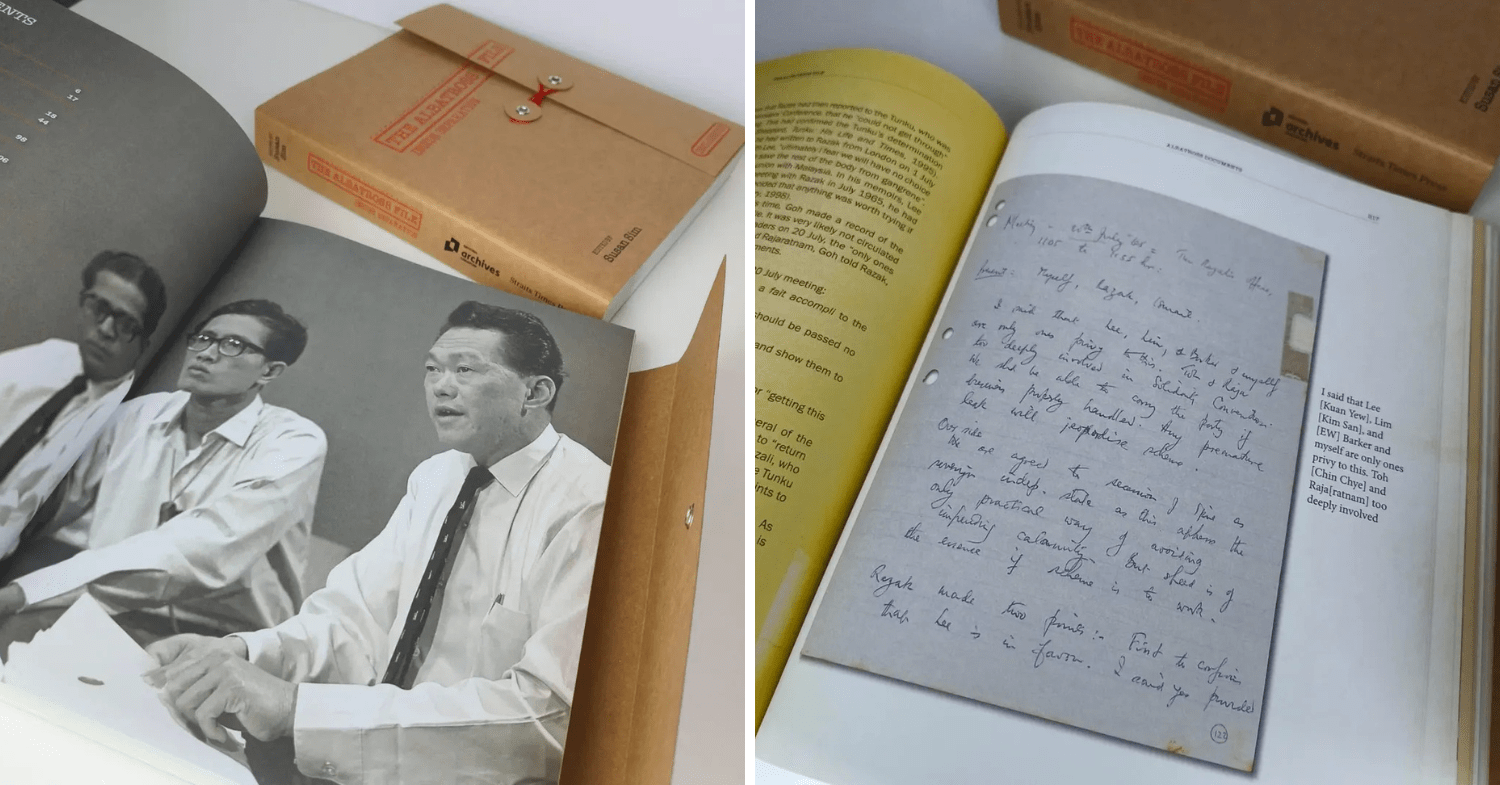 ENTS
6
17
18
44
98
THE ALBATROSS FILE
INSIDE SEPARATION
THE ALBATROSS FILE
INSIDE SEPARATION
archives
Straits Times
EDITED BY
Susan Sim
had then reported to the Tunku, who was
Conference, that he "could not get through"
This had confirmed the Tunku's determination
Tunku: His Life and Times, 1995).
had written to Razak from London on 1 July
"ultimately I fear we will have no choice
the rest of the body from gangrene"
union with Malaysia. In his memoirs, Lee
meeting with Razak in July 1965, he had
that anything was worth trying if
1998).
time, Goh made a record of the
It was very likely not circulated
on 20 July, the "only ones
Rajaratnam, Goh told Razak,
0 July meeting:
a fait accompli to the
should be passed no
and show them to
or "getting this
eral of the
to "return
zali, who
Tunku
ints to
As
is
ALBATROSS DOCUMENTS
THE ALBATROSS FILE
INSIDE SEPARATION
archives
Straits Times Press
EDITED BY
Susan Sim
Meeting - 20th July '65 = Tun Razak's office,
1105 to
Present: Myself, Razak,
I said that Lee, Lim, & Barker & myself
are only ones privy to this. Toh & Raja
too deeply involved in Solidarity Convention.
We shd be able to carry the party if
properly handled. Any premature
leak will jeopardise scheme.
Our side
We are agreed to secession of S'pore as
sovereign indep. state as this offers the
only practical way of avoiding
impending calamity. But speed is of
the essence if scheme is to work.
Razak made two points:- First to confirm
that Lee is in favour. I said yes provided
122
I said that Lee
[Kuan Yew], Lim
[Kim San], and
[EW] Barker and
myself are only ones
privy to this. Toh
[Chin Chye] and
Raja[ratnam] too
deeply involved